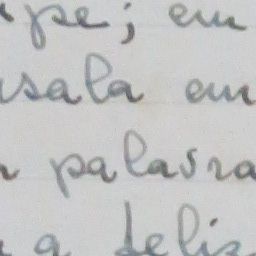 pe; em
sala em
palavra
a feliz